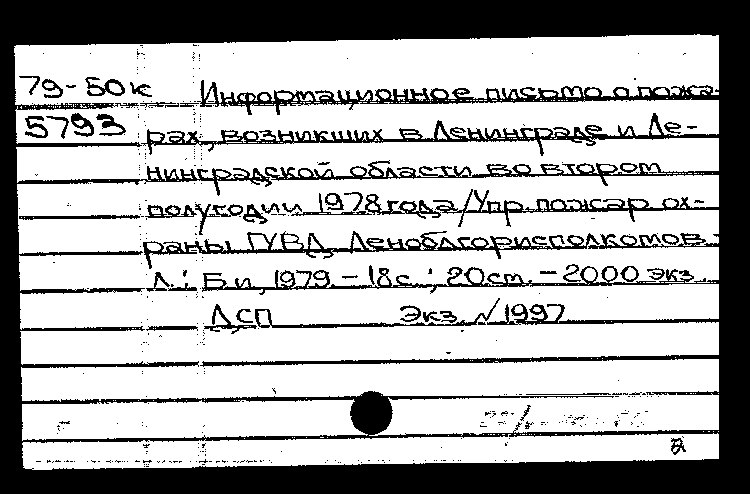 79-50к Информационное письмо о пожа-
5793 рах, возникших в Ленинграде и Ле-
нинградской области во втором
полугодии 1978 года/Упр. пожар. ох-
раны ГУВД Леноблгорисполкомов.-
Л.: Б.и., 1979 – 18 с.; 20 см. – 2000 экз.
ДСП Экз. № 1997